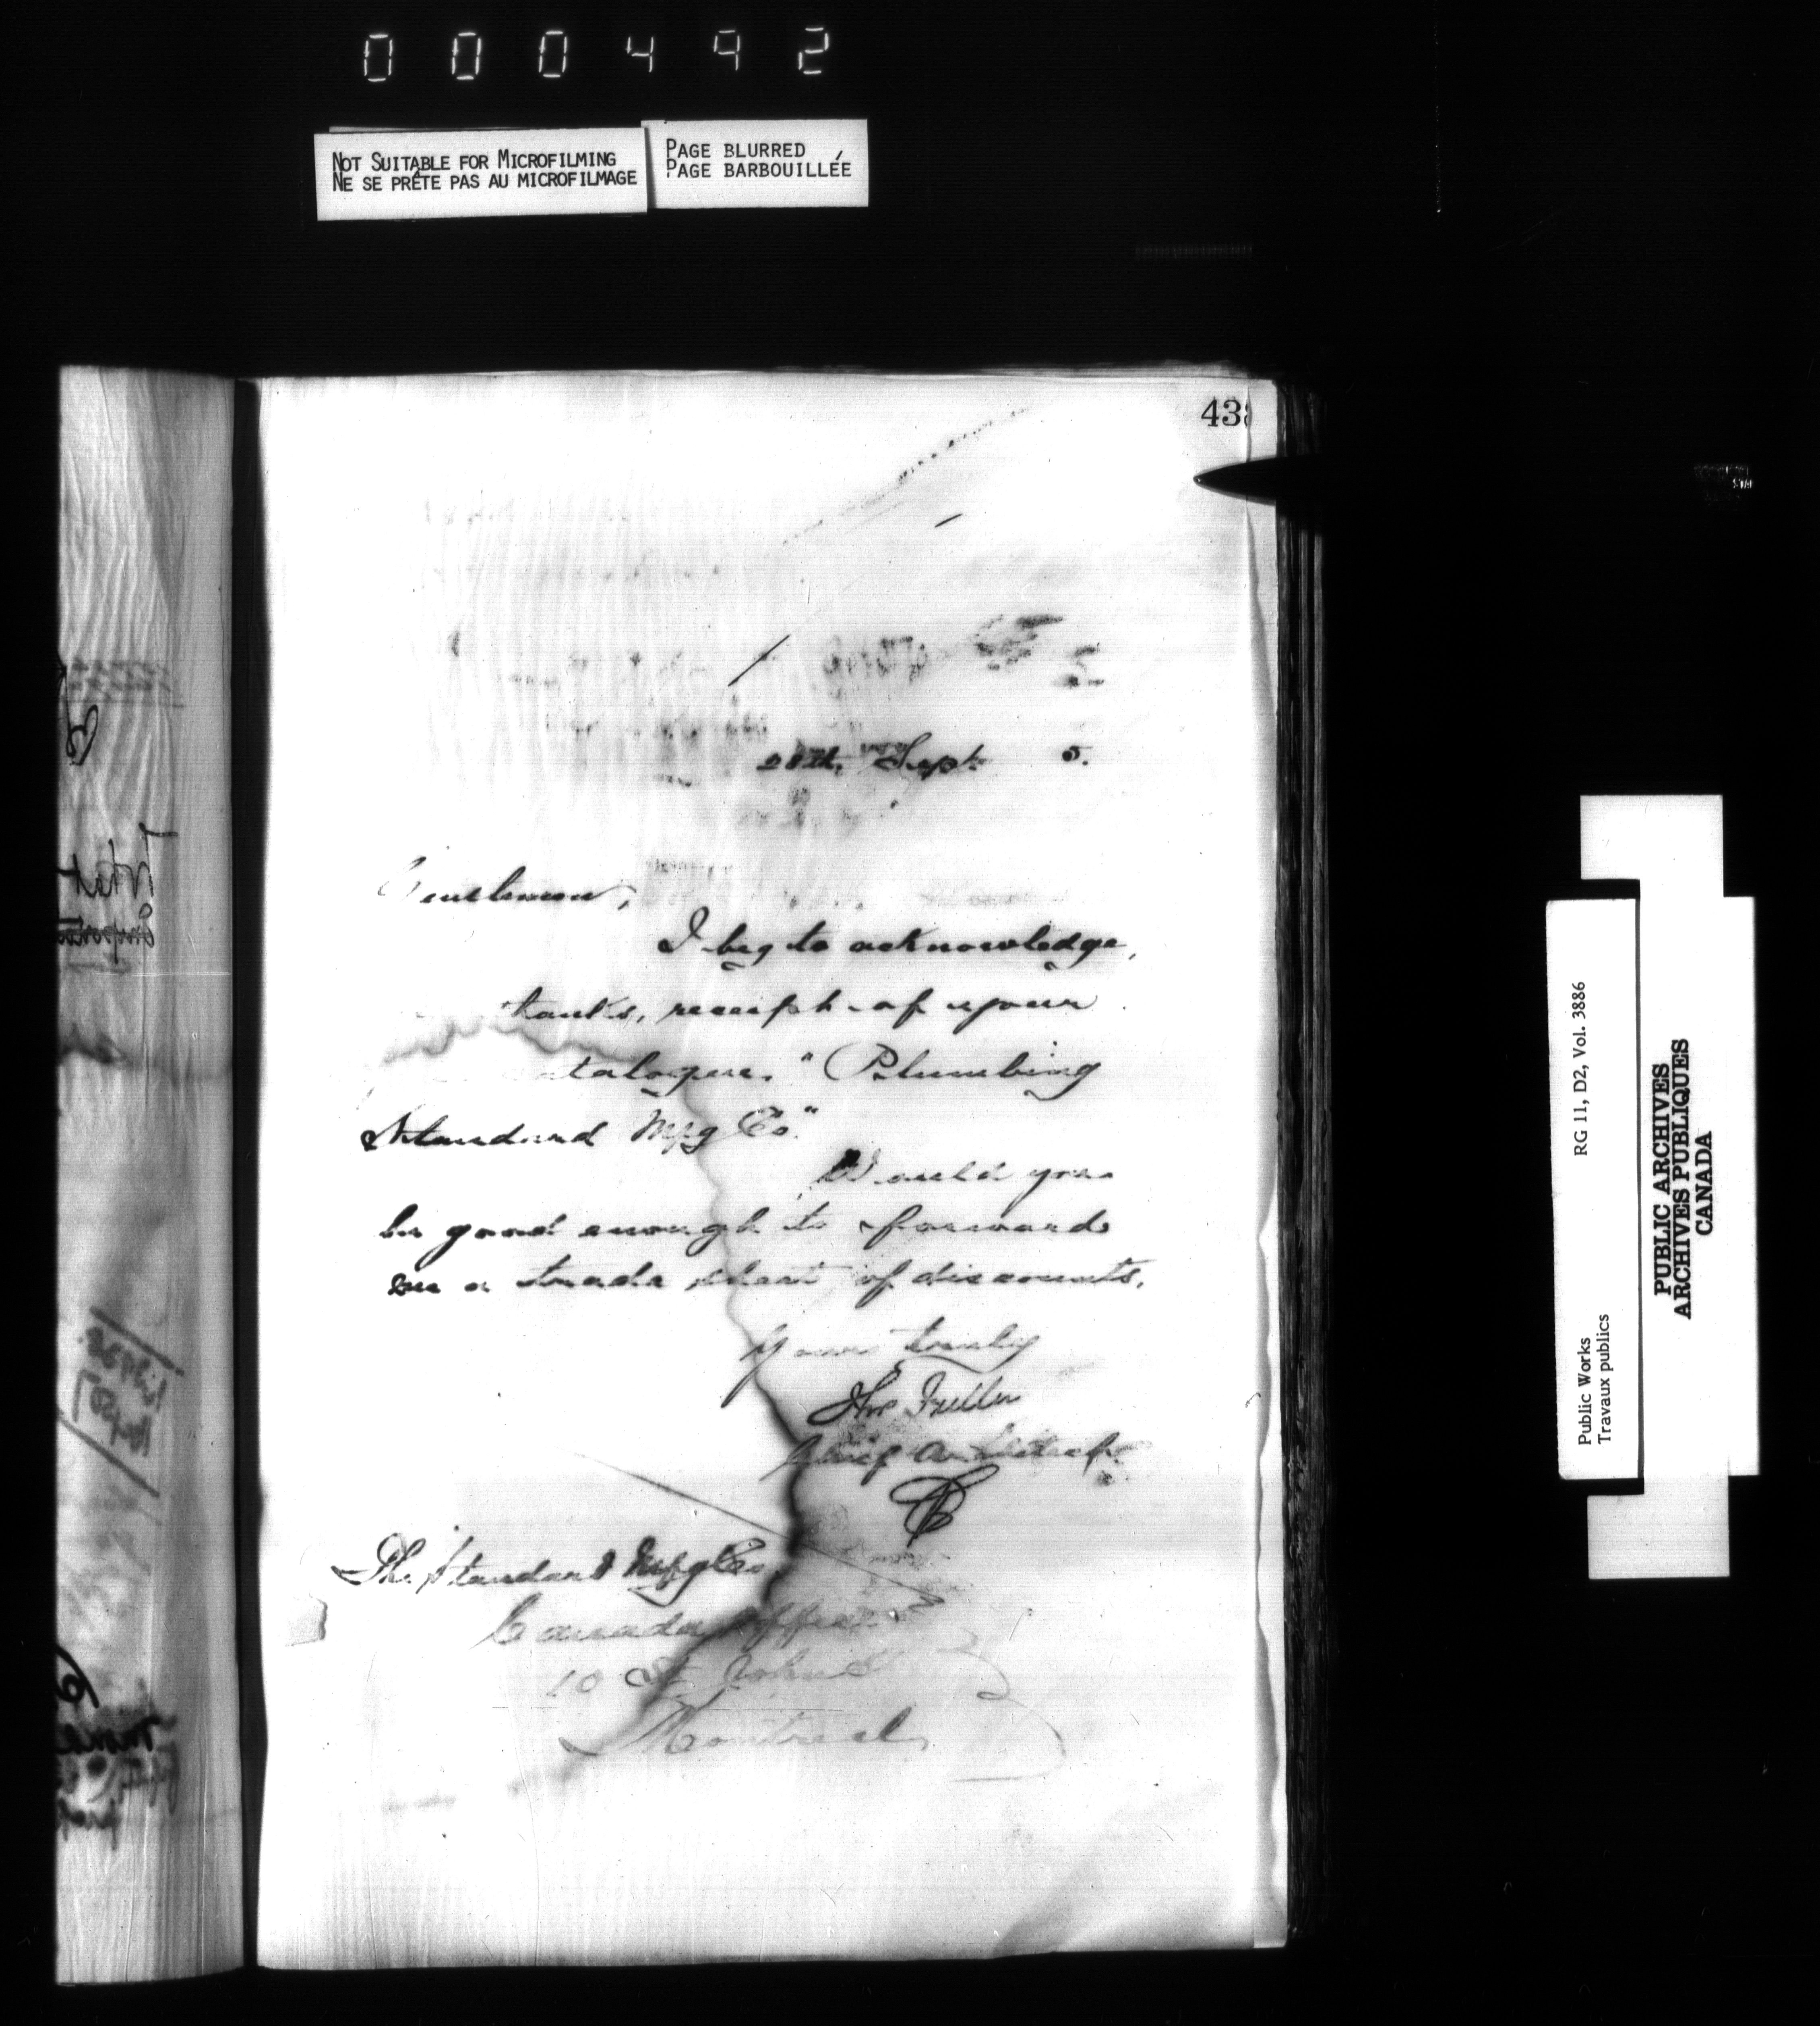 000492
NOT SUITABLE FOR MICROFILMING
NE SE PRÊTE PAS AU MICROFILMAGE
PAGE BLURRED
PAGE BARBOUILLÉE
43
28th, Sept 5.
Gentlemen,
I beg to acknowledge,
tanks, receipt of your
talogue. "Plumbing
Standard Mfg Co."
Would you
be good enough to forward
me a trade sheet of discounts.
Yours truly
Thos Fuller
Chief Architect
The Standard Mfg Co
Canada Office
10 St. John St
Montreal
RG 11, D2, Vol. 3886
Public Works
Travaux publics
PUBLIC ARCHIVES
ARCHIVES PUBLIQUES
CANADA